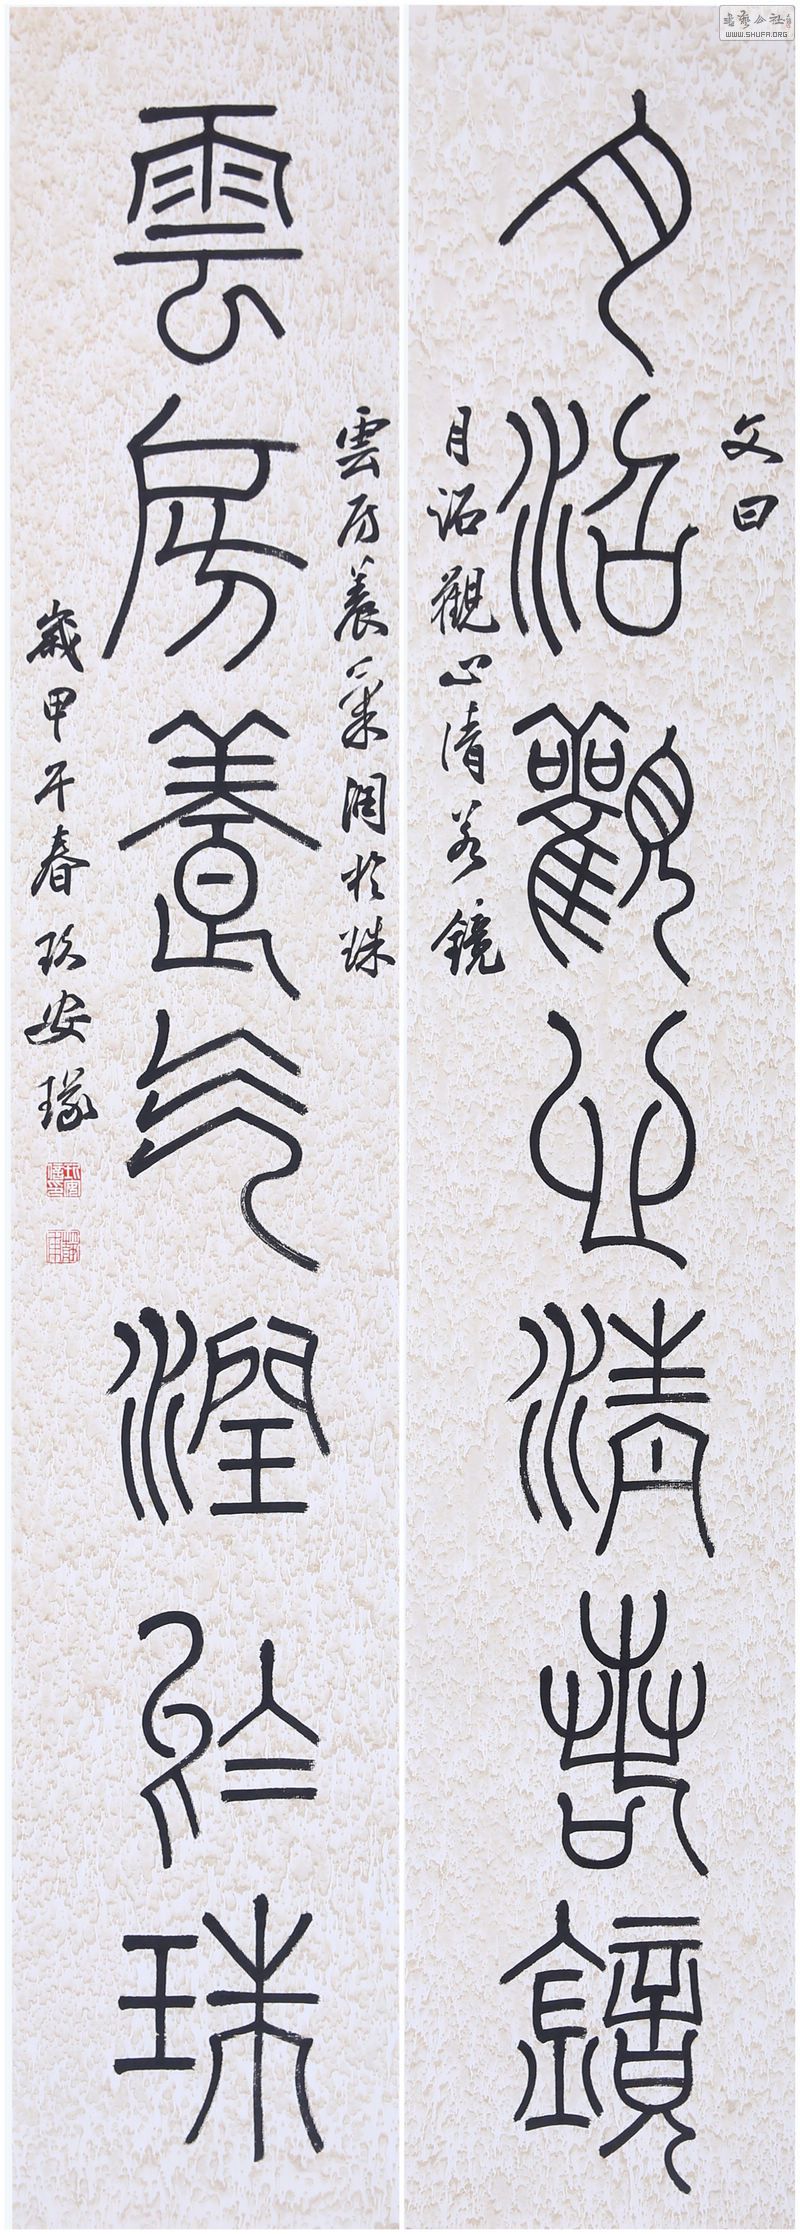 書藝公社
WWW.SHUFA.ORG
文曰
月沼觀心清若鏡
月沼觀心清若鏡
雲房養氣潤於珠
雲房養氣潤於珠
歲甲午春玖安